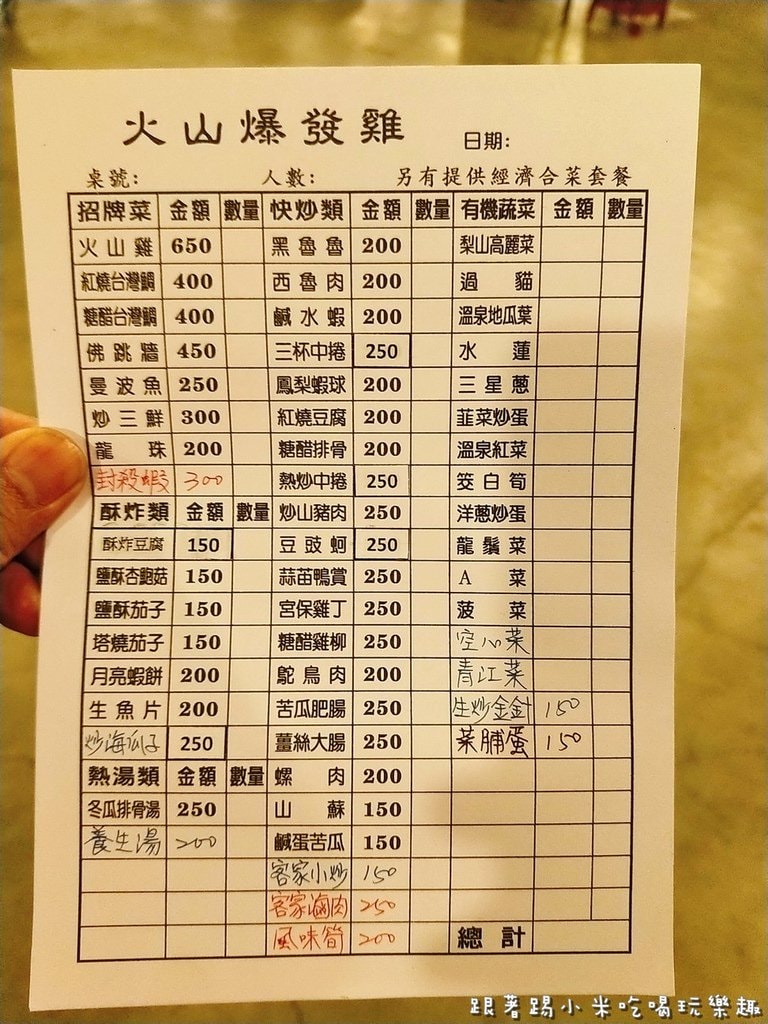 火山爆發雞
日期:
桌號: 人數: 另有提供經濟合菜套餐
招牌菜 金額 數量 快炒類 金額 數量 有機蔬菜 金額 數量
火山雞 650 黑魯魯 200 梨山高麗菜
紅燒台灣鯛 400 西魯肉 200 過貓
糖醋台灣鯛 400 鹹水蝦 200 溫泉地瓜葉
佛跳牆 450 三杯中捲 250 水蓮
曼波魚 250 鳳梨蝦球 200 三星蔥
炒三鮮 300 紅燒豆腐 200 韮菜炒蛋
龍珠 200 糖醋排骨 200 溫泉紅菜
封殺蝦 300 熱炒中捲 250 筊白筍
酥炸類 金額 數量 炒山豬肉 250 洋蔥炒蛋
酥炸豆腐 150 豆豉蚵 250 龍鬚菜
鹽酥杏鮑菇 150 蒜苗鴨賞 250 A菜
鹽酥茄子 150 宮保雞丁 250 菠菜
塔燒茄子 150 糖醋雞柳 250 空心菜
月亮蝦餅 200 鴕鳥肉 200 青江菜
生魚片 200 苦瓜肥腸 250 生炒金針 150
炒海瓜子 250 薑絲大腸 250 菜脯蛋 150
熱湯類 金額 數量 螺肉 200
冬瓜排骨湯 250 山蘇 150
養生湯 200 鹹蛋苦瓜 150
客家小炒 150
客家滷肉 250
風味筍 200 總計
跟著踢小米吃喝玩樂趣